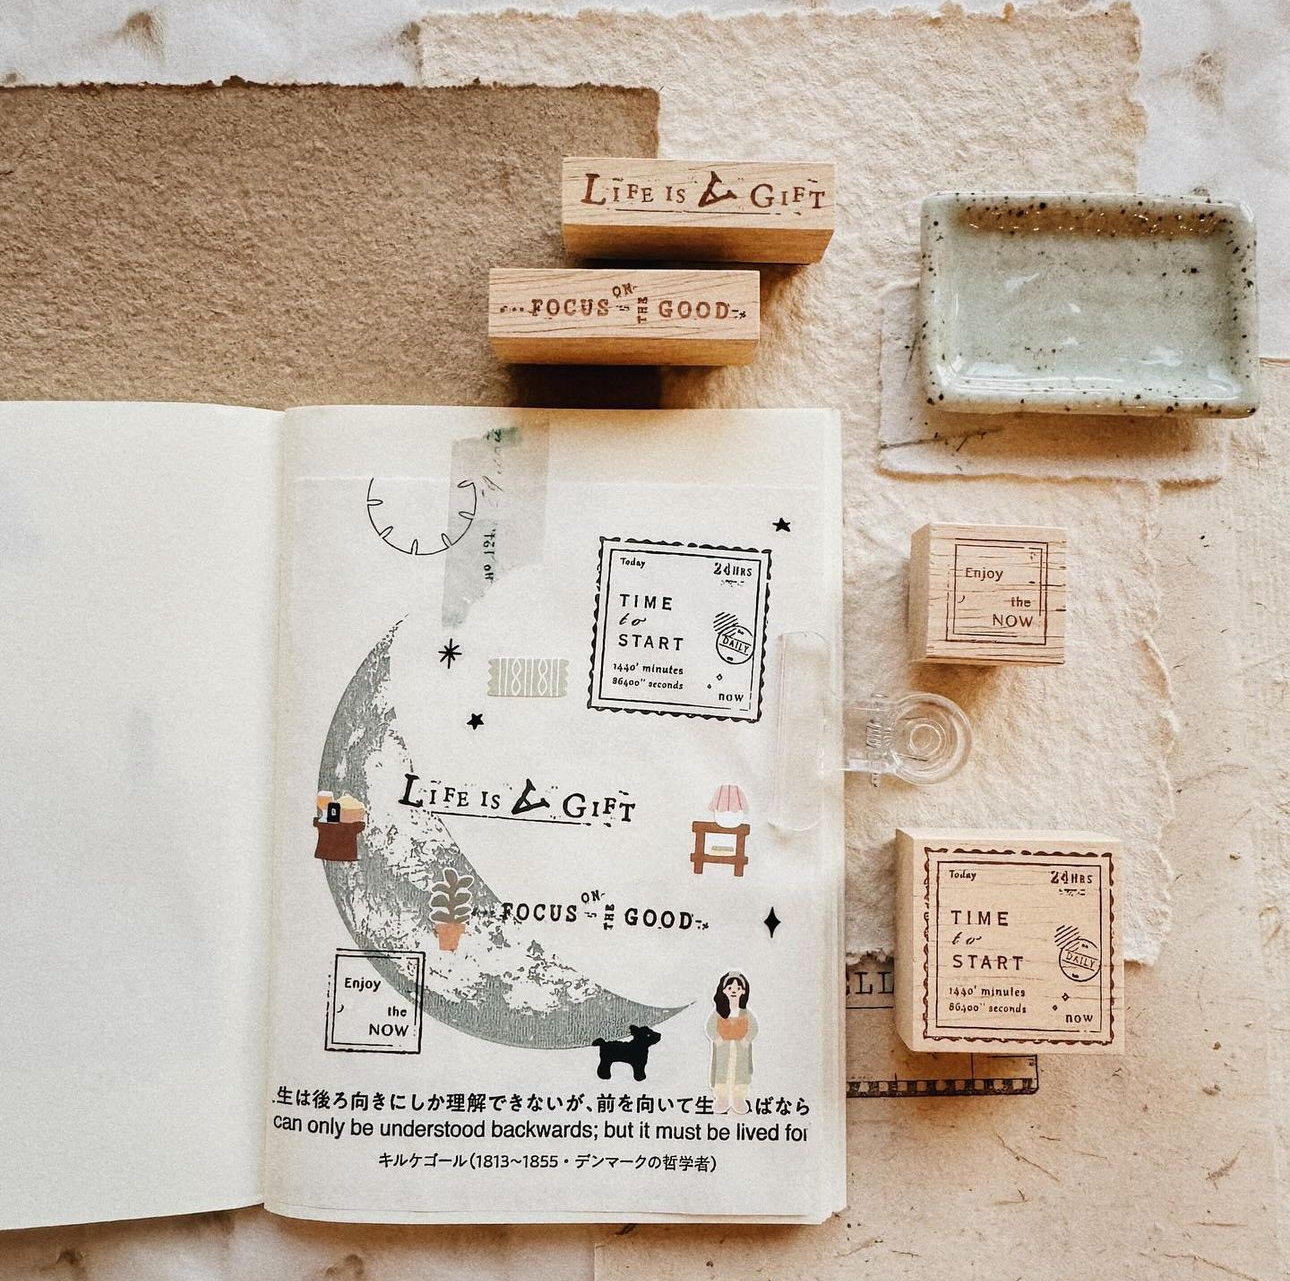 LIFE IS A GIFT
FOCUS ON THE GOOD
No 124
Today 24HRS
TIME
to
START
DAILY
1440' minutes
86400" seconds
now
Enjoy
the
NOW
LIFE IS A GIFT
FOCUS ON THE GOOD
Today 24HRS
TIME
to
START
DAILY
1440' minutes
86400" seconds
now
Enjoy
the
NOW
生は後ろ向きにしか理解できないが、前を向いて生 ばなら
can only be understood backwards; but it must be lived for
キルケゴール(1813〜1855・デンマークの哲学者)